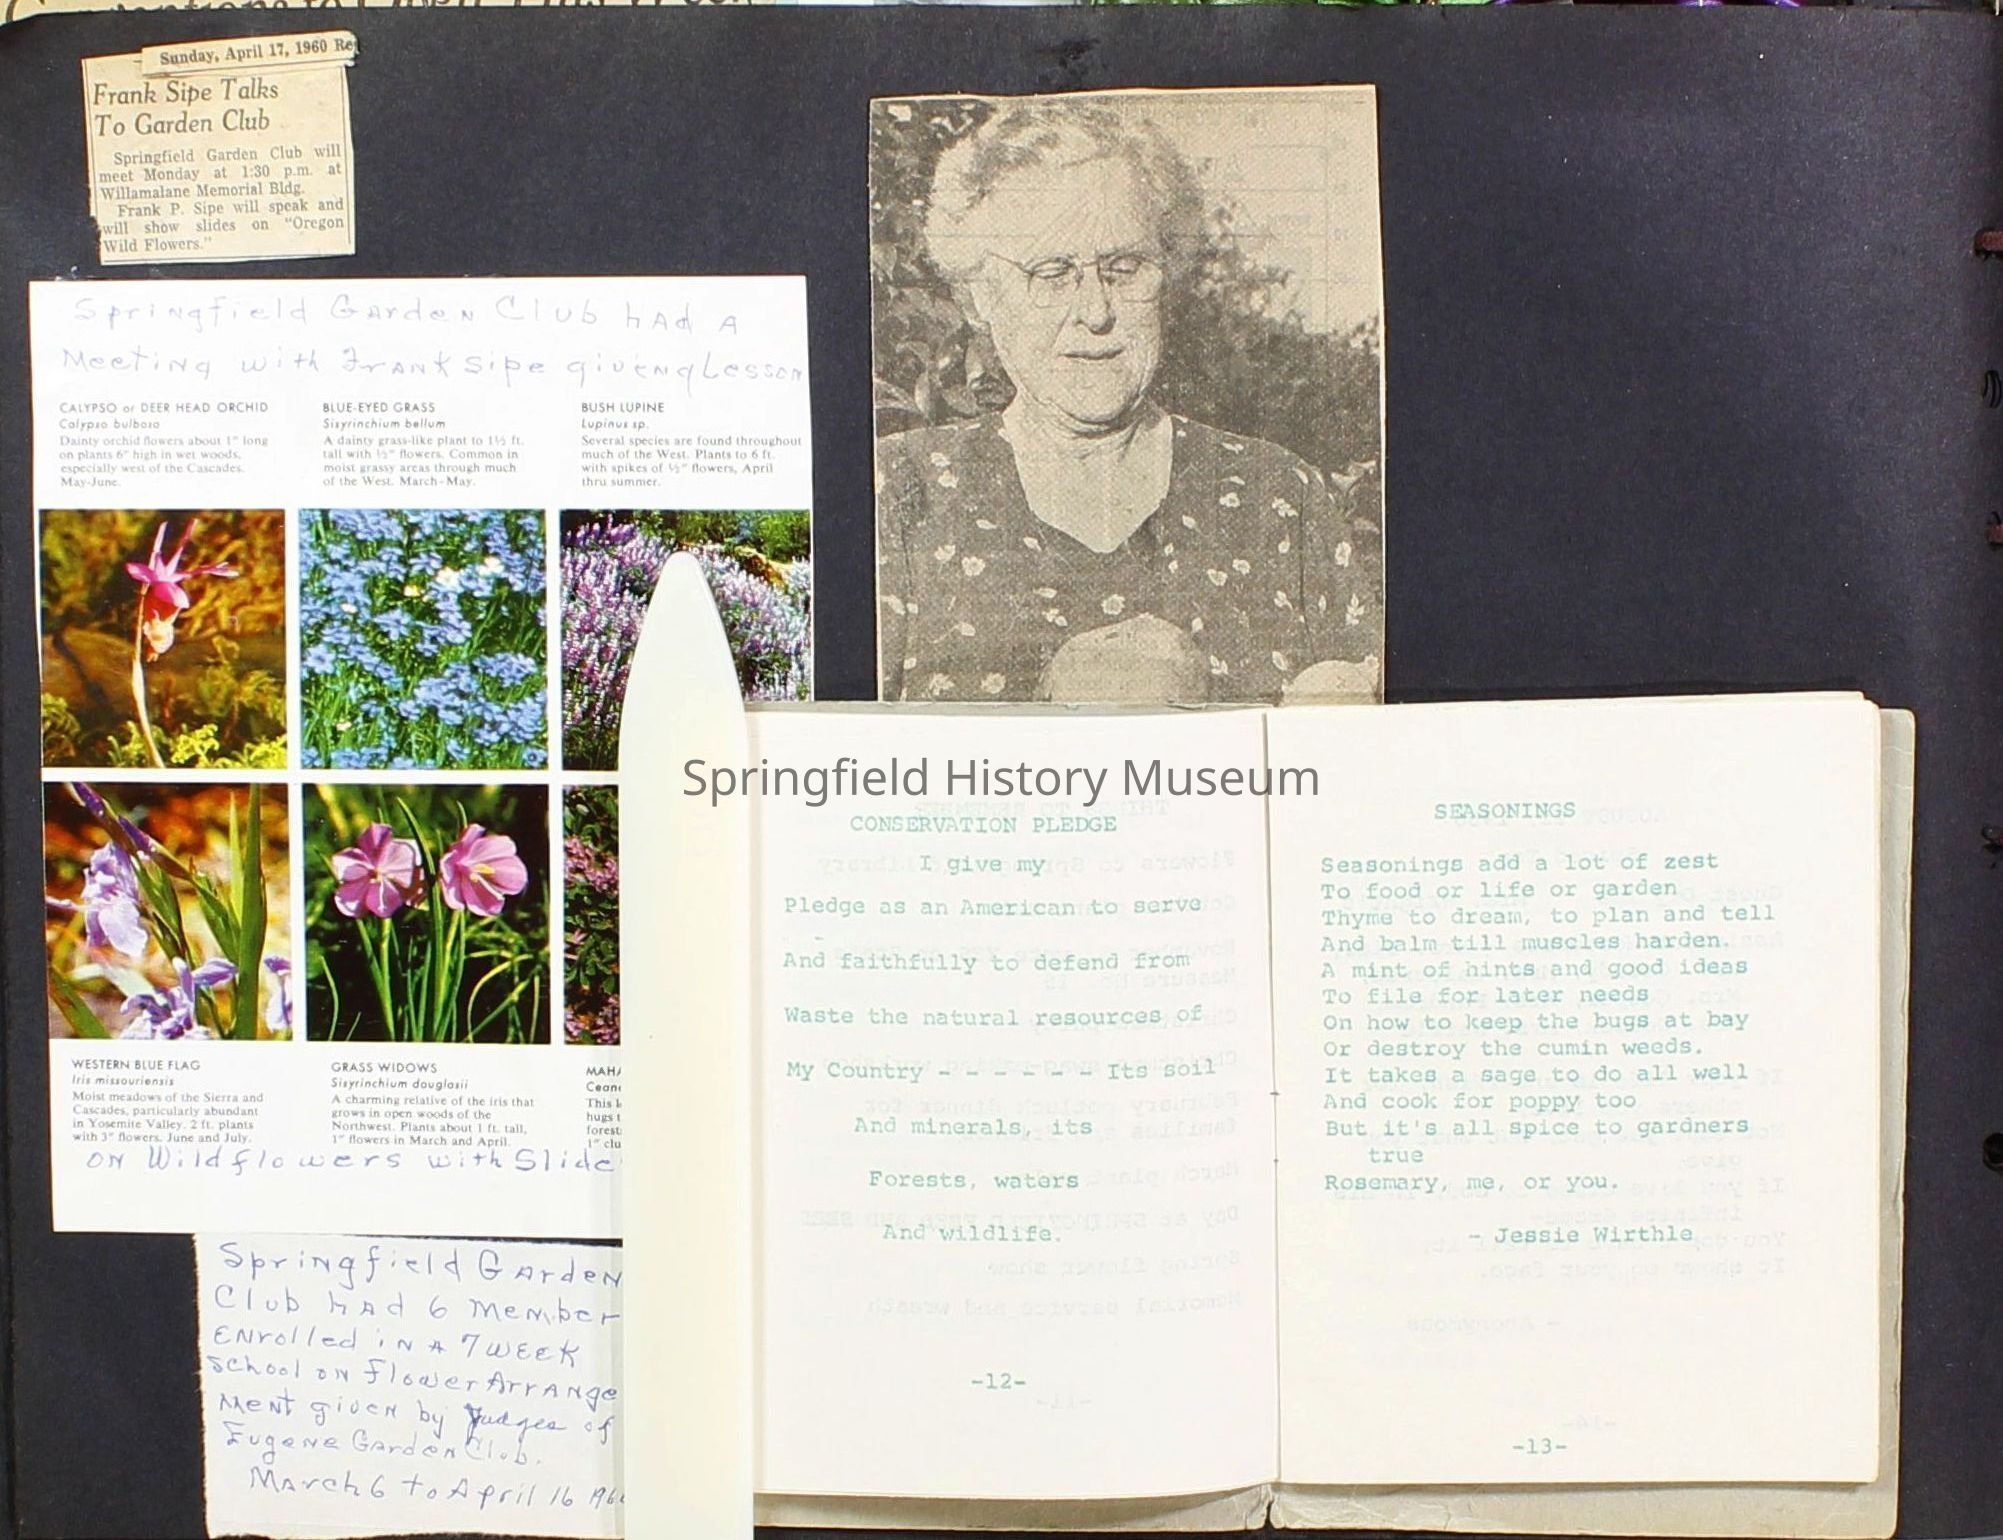 Sunday, April 17, 1960 Re
Frank Sipe Talks
To Garden Club
Springfield Garden Club will
meet Monday at 1:30 p.m. at
Willamalane Memorial Bldg.
Frank P. Sipe will speak and
will show slides on "Oregon
Wild Flowers."
Springfield Garden Club had a
Meeting with Frank Sipe giveng Lesson
CALYPSO or DEER HEAD ORCHID
Calypso bulbosa
Dainty orchid flowers about 1" long
on plants 6" high in wet woods,
especially west of the Cascades.
May-June.
BLUE-EYED GRASS
Sisyrinchium bellum
A dainty grass-like plant to 1½ ft.
tall with ½" flowers. Common in
moist grassy areas through much
of the West. March-May.
BUSH LUPINE
Lupinus sp.
Several species are found throughout
much of the West. Plants to 6 ft.
with spikes of ½" flowers, April
thru summer.
WESTERN BLUE FLAG
Iris missouriensis
Moist meadows of the Sierra and
Cascades, particularly abundant
in Yosemite Valley. 2 ft. plants
with 3" flowers. June and July.
GRASS WIDOWS
Sisyrinchium douglasii
A charming relative of the iris that
grows in open woods of the
Northwest. Plants about 1 ft. tall,
1" flowers in March and April.
MAHA
Cean
This l
hugs t
forest
1" clu
on Wildflowers with Slide
Springfield Garden
Club had 6 Member
Enrolled in a 7 week
School on Flower Arrange
Ment given by Judges of
Eugene Garden Club.
March 6 to April 16 196
Springfield History Museum
CONSERVATION PLEDGE
I give my
Pledge as an American to serve
And faithfully to defend from
Waste the natural resources of
My Country - - - - - - Its soil
And minerals, its
Forests, waters
And wildlife.
-12-
SEASONINGS
Seasonings add a lot of zest
To food or life or garden
Thyme to dream, to plan and tell
And balm till muscles harden.
A mint of hints and good ideas
To file for later needs
On how to keep the bugs at bay
Or destroy the cumin weeds.
It takes a sage to do all well
And cook for poppy too
But it's all spice to gardners
true
Rosemary, me, or you.
- Jessie Wirthle
-13-